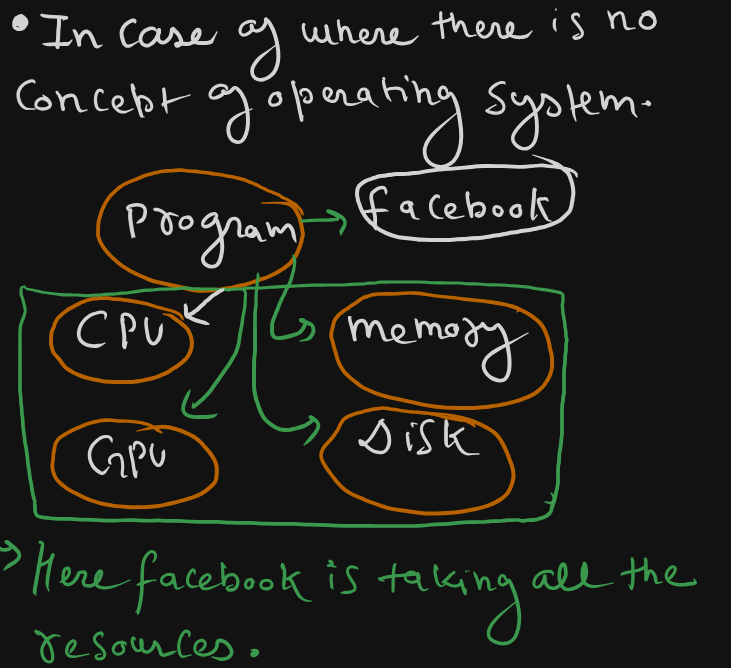 • In case of where there is no
Concept of operating system.
Program → facebook
CPU
memory
GPU
Disk
→ Here facebook is taking all the
resources.